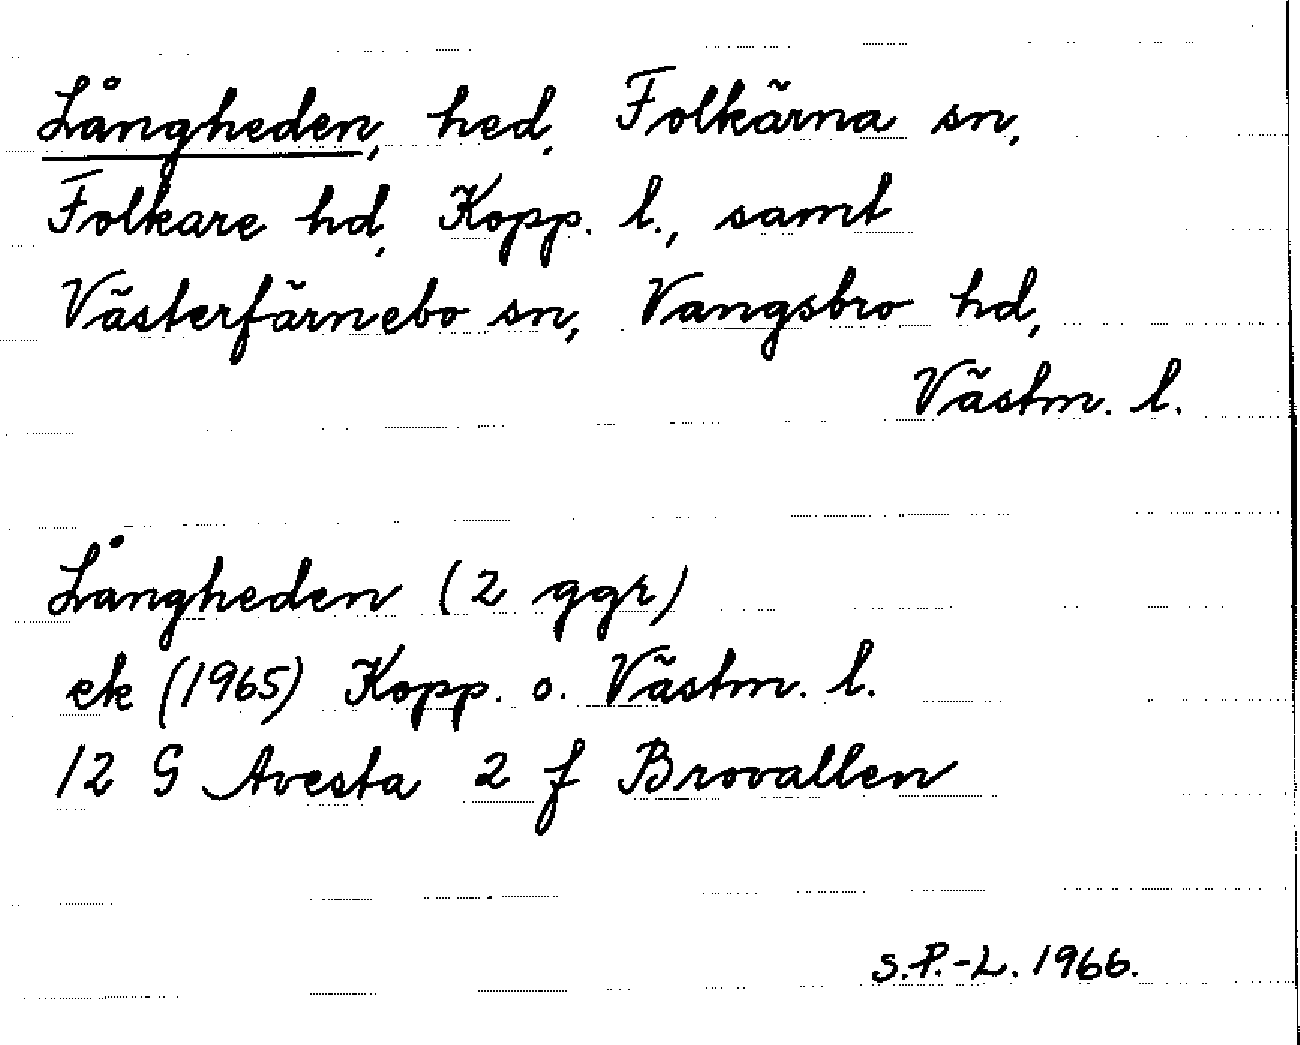 Långheden, hed, Folkärna sn,
Folkare hd, Kopp. l., samt
Västerfärnebo sn, Vangsbro hd,
Västm. l.
Långheden (2 ggr)
ek (1965) Kopp. o. Västm. l.
12 G Avesta 2 f Brovallen
S.P.-L. 1966.